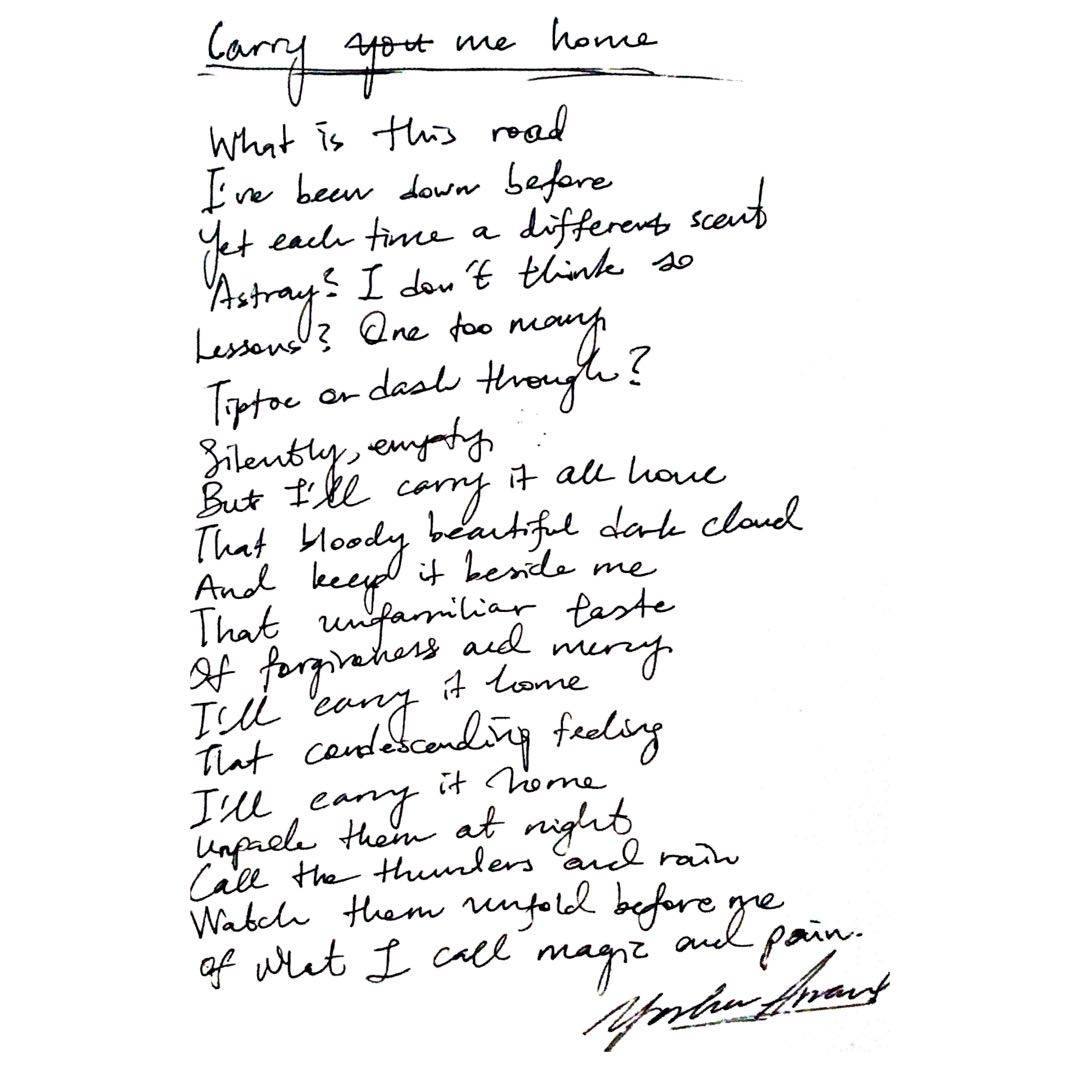 Carry you me home
What is this road
I've been down before
Yet each time a different scent
Astray? I don't think so
Lessons? One too many
Tiptoe or dash through?
Silently, empty
But I'll carry it all home
That bloody beautiful dark cloud
And keep it beside me
That unfamiliar taste
Of forgiveness and mercy
I'll carry it home
That condescending feeling
I'll carry it home
Unpack them at night
Call the thunders and rain
Watch them unfold before me
Of what I call magic and pain.